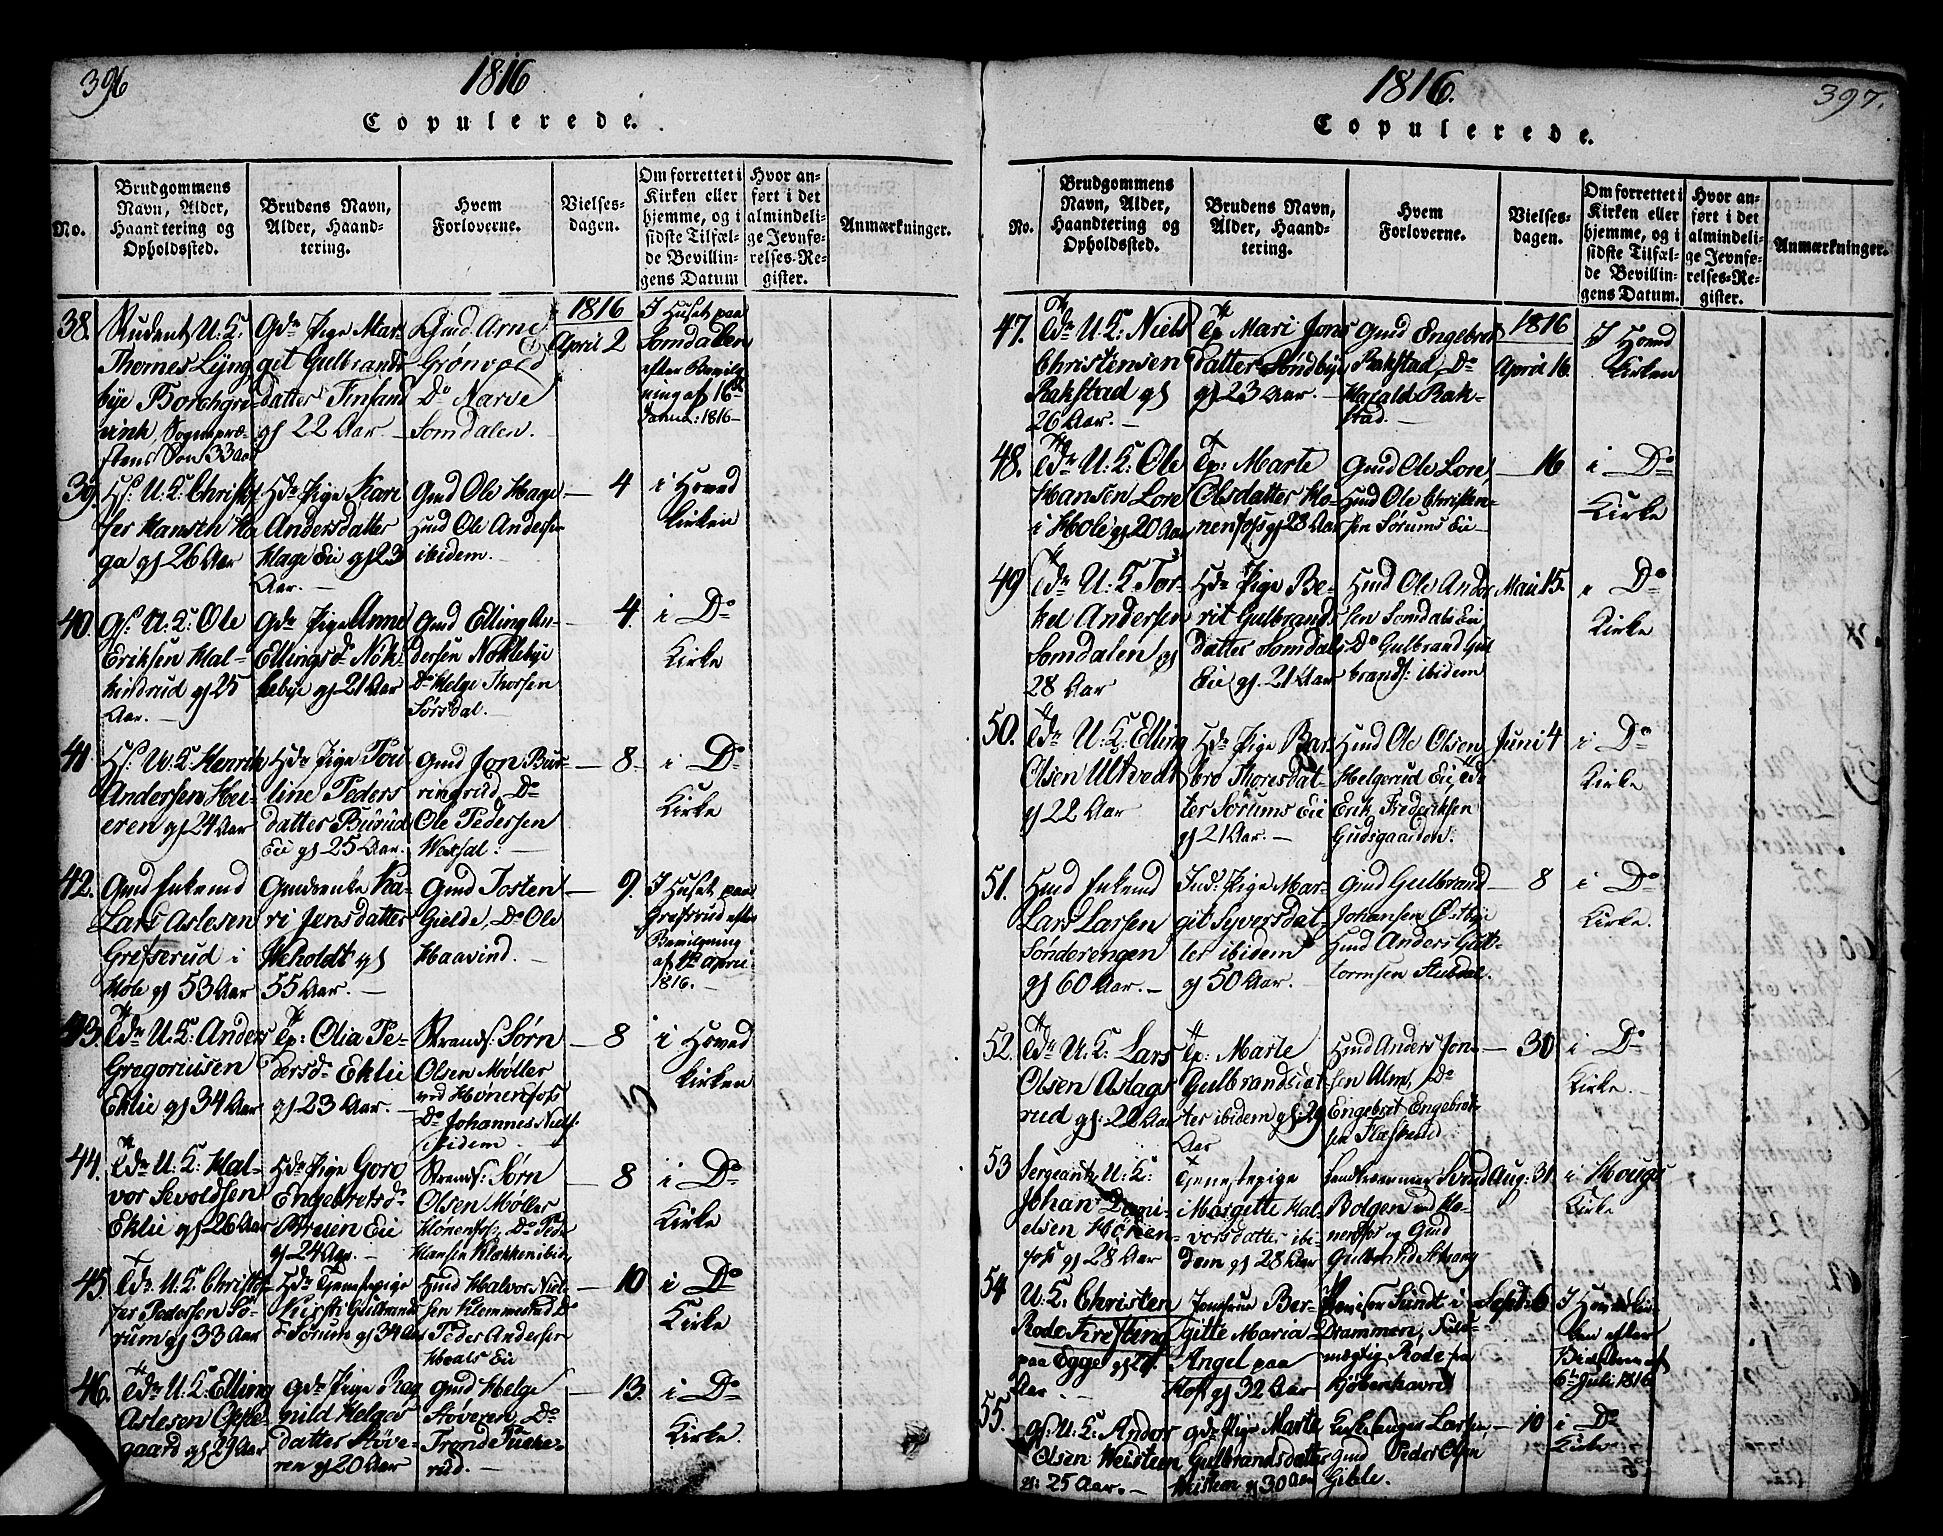 396
1816
Copulerede.
No.
Brudgommens Navn, Alder, Haandtering og Opholdssted.
Brudens Navn, Alder, Haandtering.
Hvem Forloverne.
Vielsesdagen.
Om forrettet i Kirken eller hjemme, og i sidste Tilfælde Bevillingens Datum
Hvor anført i det almindelige Jevnførelses-Register.
Anmærkninger.
38.
Student U: K:
Thomes Lyng
bye Borchgre
vink, Sognepræ
stens Søn 33 Aar
Gdr Pige Mar
git Gulbrands
datter Finsand
gl 22 Aar. —
Gmd. Arne
Grønvold
Do Narve
Somdalen.
1816
April 2
I Huset paa
Somdalen
efter Bevilg
ning af 16de
Janua: 1816
39.
Hs: U: K: Christof
fer Hansen Ha
ga gl 26 Aar
Hdr Pige Kari
Andersdatter
Hage Eie gl 23
Aar. —
Gmd Ole Hage
Hmd Ole Anderse
ibidem.
— 4
i Hoved
kirken
40.
Gs: U: K: Ole
Eriksen Hal-
kindrud gl 25
Aar. —
Gdr Pige Anne
Ellingsdr Nøk
lebye gl 21 Aar
Gmd Elling An-
dersen Nøklebye
Do Helge Thorsen
Sørsdal. —
— 4
i Do
Kirke
41
Hs: U: K Henrik
Andersen Hei-
eren gl 24 Aar
Hdr Pige Pou
line Peders
datter Burud
Eie gl 25 Aar.
Gmd Jon Bur-
ringrud, Do
Ole Pedersen
Wexsal: —
— 8.
i Do
Kirke
42.
Gmd Enkemd
Lars Aslesen
Grefsrud i
Hole gl 53 Aar
Gmdsenke Ka-
ri Jensdatter
Weholdt gl
55 Aar. —
Gmd Tosten
Gielde, Do Ole
Haavind. —
— 9.
I Huset paa
Grefsrud efter
Bevilgning
af 1te April
1816. —
43.
Tdr U: K: Anders
Gregoriusen
Eklie gl 34 Aar
Tp: Olia Pe-
dersdr Eklie
gl 23 Aar. —
Strands: Sørn
Olsen Møller
ved Hønenfoss
Do Johannes Niels:
ibidem. —
8
i Hoved
kirken
44.
Tdr U: K: Hal-
vor Sevoldsen
Eklie gl 26 Aar
Hdr Pige Goro
Engebretsdr
Breien Eie
gl 24 Aar. —
Strands: Sørn
Olsen Møller
Hønenfoss, Do Peder
Hansen Klækken ibid.
8
i Do
Kirke
45.
Tdr U: K: Christof
fer Pedersen So-
rum gl 33 Aar
Hdr Tjenstepige
Kirsti Gulbrands
dr Sorum gl 34 Aar
Hmd Halvor Niel
sen Klemmetsrud Do
Peder Andersen
Hvals Eie
— 10
i Do
Kirke
46.
Tdr U: K: Elling
Aslesen Oppe
gaard gl 29 Aar
Gdr Pige Rag
nild Helges
datter Støve-
ren gl 20 Aar
Gmd Helge
Støveren, Do
Trond Fiske-
rud. —
— 13.
i Do
Kirke.
1816.
397.
Copulerede.
No.
Brudgommens Navn, Alder, Haandtering og Opholdssted.
Brudens Navn, Alder, Haandtering.
Hvem Forloverne.
Vielsesdagen.
Om forrettet i Kirken eller hjemme, og i sidste Tilfælde Bevillingens Datum.
Hvor anført i det almindelige Jevnførelses-Register.
Anmærkninger.
47.
Tdr U: K: Niels
Christensen
Rakstad gl
26 Aar. —
Tp Mari Jons
datter Sondbye
gl 23 Aar. —
Gmd Engebret
Rakstad, Do
Harald Rak-
stad. —
1816
April 16.
I Hoved
Kirken
48.
Tdr U: K: Ole
Hansen Lore
i Hole gl 20 Aar
Tp: Marte
Olsdatter Hø-
nenfoss gl 28 Aar
Gmd Ole Lore,
Hmd Ole Christen-
sen Sørums Eie
— 16
i Do
Kirke
49
Tdr U: K Tor-
kel Andersen
Somdalen gl
28 Aar
Hdr Pige Be-
rit Gulbrands
datter Somdals
Eie gl. 21 Aar
Hmd Ole Ander
sen Somdals Eie
Do Gulbrand Gul
brands: ibidem
Mai 15.
i Do
Kirke
50.
Tdr U: K: Elling
Olsen Ultvedt
gl 22 Aar
Hdr Pige Bar
bro Thoresdat-
ter Sørums Eie
gl 21 Aar. —
Hmd Ole Olsen
Helgerud Eie, Tdr
Erik Frederiksen
Gudsgaarden.
Juni 4
i Do
Kirke
51.
Hmd Enkemd
Lars Larsen
Sønderengen
gl 60 Aar. —
Ind: Pige Mar-
git Syversdat-
ter ibidem
gl 50 Aar. —
Gmd Gulbrand
Johansen Østbye
Hmd Anders Gutt-
ormsen Stubdal.
— 8
i Do
Kirke.
52.
Tdr U: K: Lars
Olsen Aslag
rud gl. 22 Aar
Tp: Marte
Gulbrandsdat
ter ibidem gl: 29
Aar
Hmd Anders Jon-
sen Alme, Do
Engebret Engebret-
sen Flaskerud
— 30
i Do
Kirke. —
53
Sergeant U: K:
Johan Dani-
elsen Hønen-
foss gl 28 Aar
Tjenestepige
Margitte Hal-
vorsdatter ibi-
dem gl 28 Aar
Bolgen ved Hø-
nenfoss og Gmd
Aug: 31
i Hougs
Kirke
54
U: K: Christen
Rode Krefting
paa Egge gl 27.
Aar. —
Jomfrue Ber-
gitte Maria
Angel paa
Hof gl 32 Aar
Provisor Sundt i
Drammen, Fuld-
mægtig Rode fra
Kjøbenhavn
Sept: 6
I Hovedkir-
ken efter
6te Juli 1816
55.
Gs: U: K: Anders
Olsen Weisteen
gl: 25 Aar. —
Gdr Pige Marte
Gulbrandsdatter
Weisteen gl 30 Aar
Kirkesanger Larsen
Gmd Peder Olsen
Gielle.
— 10
i Do
Kirke